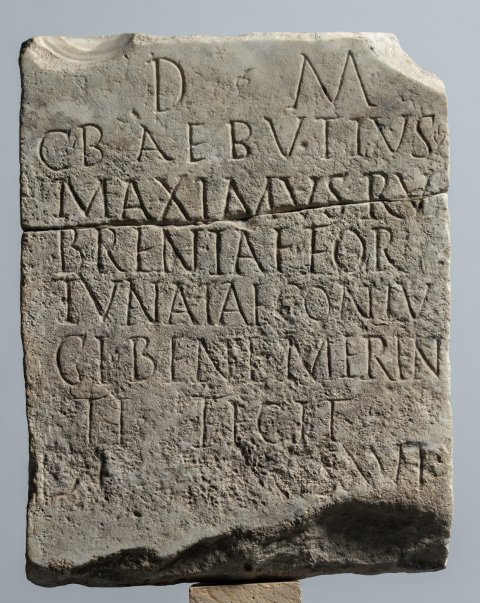 D M
C·BAEBUTIUS
MAXIMUS RU
BRENIAE FOR
TUNATAE CONIU
GI BENE MEREN
TI FECIT